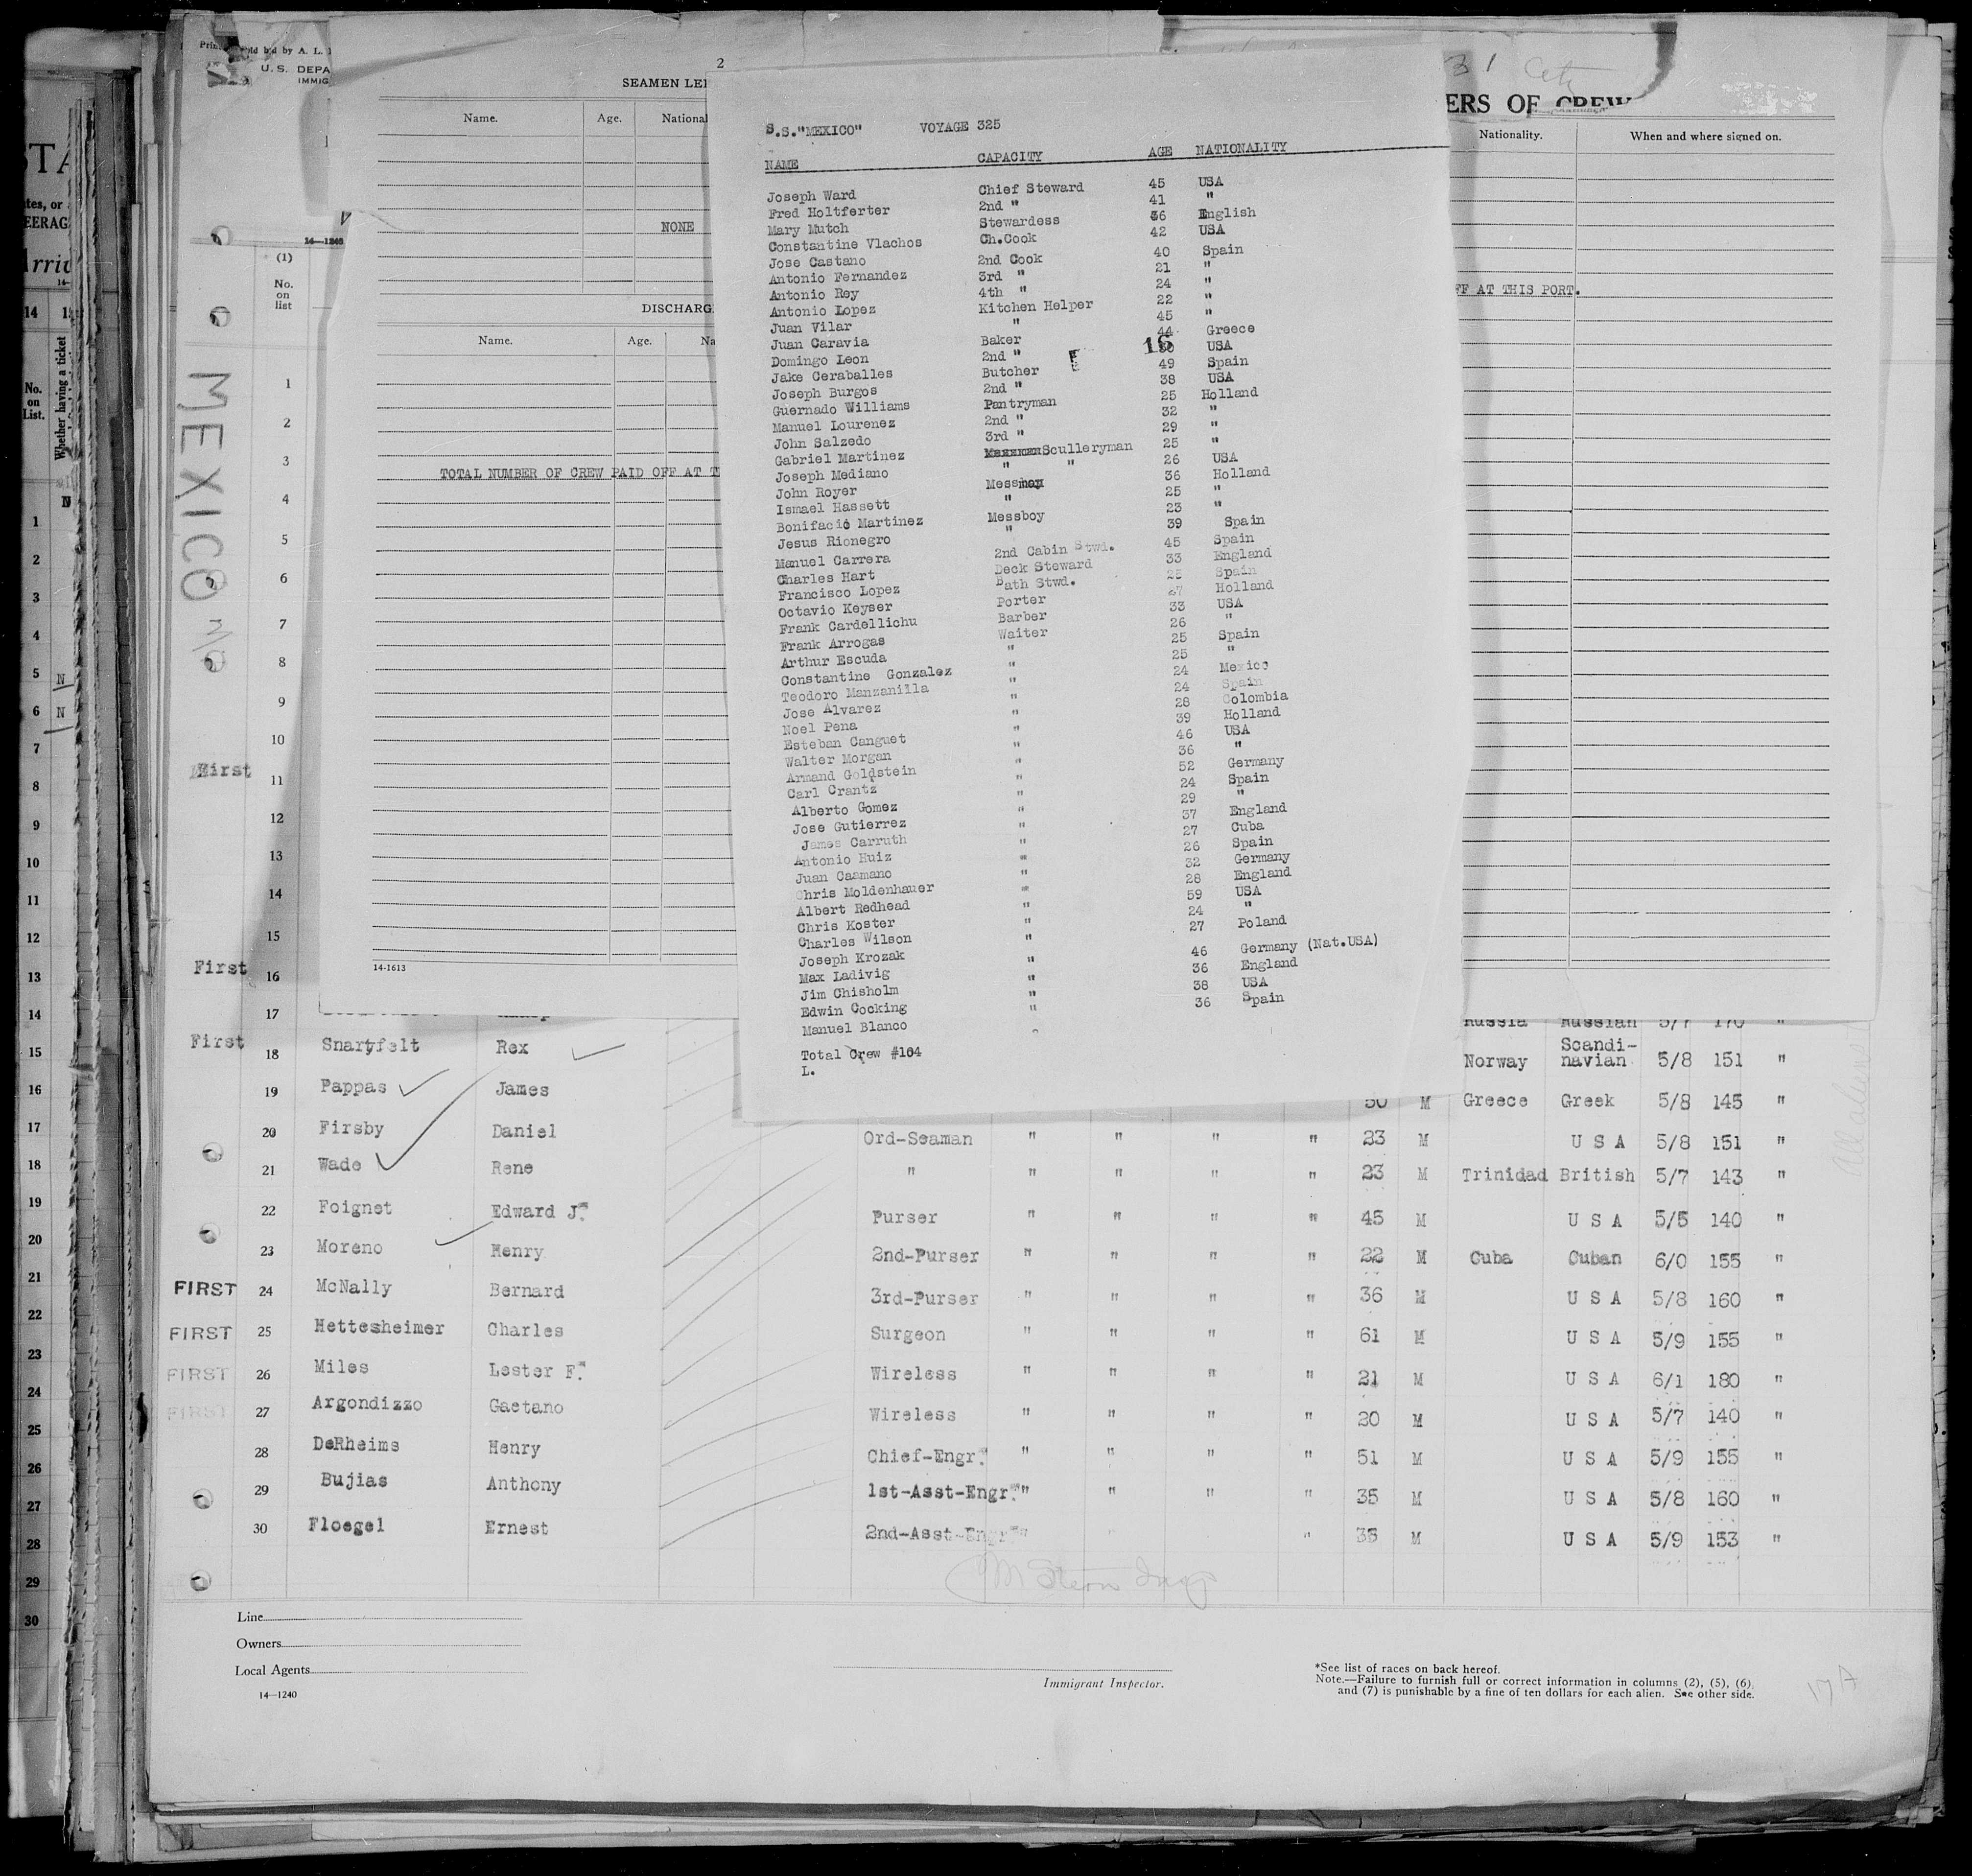 2
SEAMEN
Name. Age.
NONE
Name. Age.
TOTAL NUMBER OF CREW PAID OFF AT
14-1613
S.S."MEXICO" VOYAGE 325
NAME CAPACITY AGE NATIONALITY
Joseph Ward Chief Steward 45 USA
Fred Holtferter 2nd " 41 "
Mary Mutch Stewardess 36 English
Constantine Vlachos Ch.Cook 42 USA
Jose Castano 2nd Cook 40 Spain
Antonio Fernandez 3rd " 21 "
Antonio Rey 4th " 24 "
Antonio Lopez Kitchen Helper 22 "
Juan Vilar " 45 "
Juan Caravia Baker 44 Greece
Domingo Leon 2nd " 30 USA
Jake Ceraballes Butcher 49 Spain
Joseph Burgos 2nd " 38 USA
Guernado Williams Pantryman 25 Holland
Manuel Lourenez 2nd " 32 "
John Salzedo 3rd " 29 "
Gabriel Martinez Sculleryman 25 "
Joseph Mediano " " 26 USA
John Royer Messman 36 Holland
Ismael Hassett " 25 "
Bonifacio Martinez Messboy 23 "
Jesus Rionegro " 39 Spain
Manuel Carrera 2nd Cabin Stwd. 45 Spain
Charles Hart Deck Steward 33 England
Francisco Lopez Bath Stwd. 25 Spain
Octavio Keyser Porter 27 Holland
Frank Cardellichu Barber 33 USA
Frank Arrogas Waiter 26 "
Arthur Escuda " 25 Spain
Constantine Gonzalez " 25 "
Teodoro Manzanilla " 24 Mexico
Jose Alvarez " 24 Spain
Noel Pena " 28 Colombia
Esteban Canguet " 39 Holland
Walter Morgan " 46 USA
Armand Goldstein " 36 "
Carl Crantz " 52 Germany
Alberto Gomez " 24 Spain
Jose Gutierrez " 29 "
James Carruth " 37 England
Antonio Huiz " 27 Cuba
Juan Caamano " 26 Spain
Chris Moldenhauer " 32 Germany
Albert Redhead " 28 England
Chris Koster " 59 USA
Charles Wilson " 24 "
Joseph Krozak " 27 Poland
Max Ladivig " 46 Germany (Nat.USA)
Jim Chisholm " 36 England
Edwin Cocking " 38 USA
Manuel Blanco " 36 Spain
Total Crew #104
L.
16
ERS OF CREW
Nationality. When and where signed on.
FF AT THIS PORT.
U.S.
14—1240
(1)
No.
on
list
MEXICO
1
2
3
4
5
6
7
8
9
10
First 11
12
13
14
15
First 16
17 Russia Russian 5/7 170 "
First 18 Snartfelt Rex Norway Scandi-navian 5/8 151 "
19 Pappas James 50 M Greece Greek 5/8 145 "
20 Firsby Daniel Ord-Seaman " " " " 23 M U S A 5/8 151 "
21 Wade Rene " " " " " 23 M Trinidad British 5/7 143 "
22 Foignet Edward J. Purser " " " " 45 M U S A 5/5 140 "
23 Moreno Henry 2nd-Purser " " " " 22 M Cuba Cuban 6/0 155 "
FIRST 24 McNally Bernard 3rd-Purser " " " " 36 M U S A 5/8 160 "
FIRST 25 Hettesheimer Charles Surgeon " " " " 61 M U S A 5/9 155 "
FIRST 26 Miles Lester F. Wireless " " " " 21 M U S A 6/1 180 "
FIRST 27 Argondizzo Gaetano Wireless " " " " 20 M U S A 5/7 140 "
28 DeRheims Henry Chief-Engr. " " " " 51 M U S A 5/9 155 "
29 Bujias Anthony 1st-Asst-Engr." " " " 35 M U S A 5/8 160 "
30 Floegel Ernest 2nd-Asst-Engr " " " 38 M U S A 5/9 153 "
Line
Owners
Local Agents
14—1240
Immigrant Inspector.
*See list of races on back hereof.
Note.—Failure to furnish full or correct information in columns (2), (5), (6),
and (7) is punishable by a fine of ten dollars for each alien. See other side.
17A
No.
on
List.
Whether having a ticket
1
2
3
4
5 N
6 N
7
8
9
10
11
12
13
14
15
16
17
18
19
20
21
22
23
24
25
26
27
28
29
30